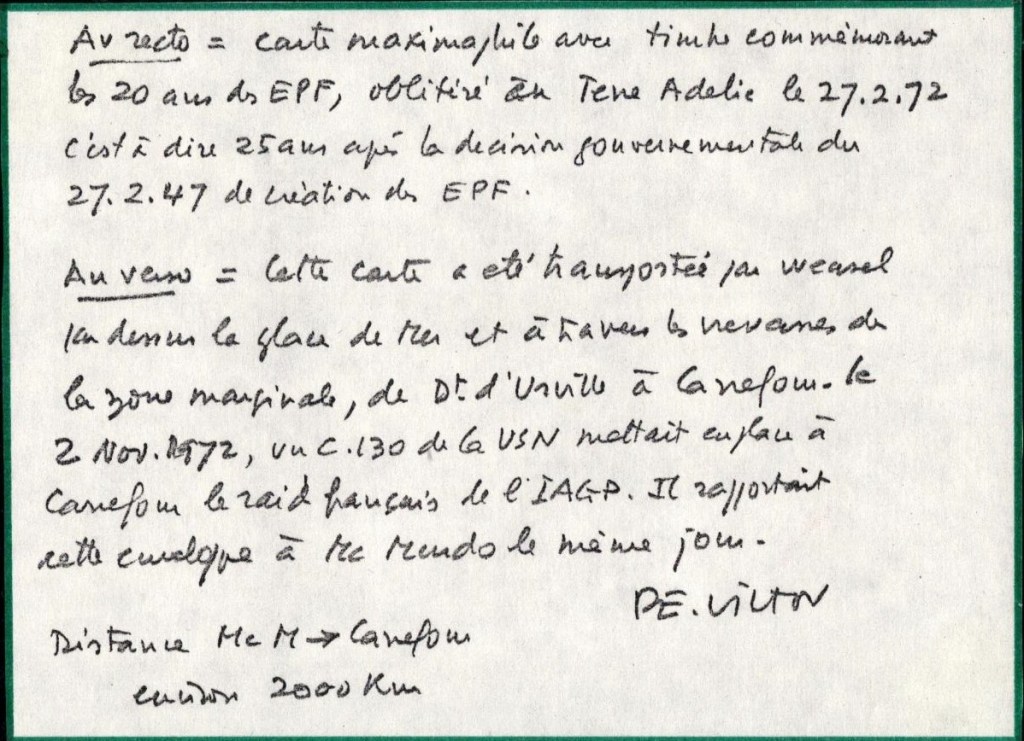 Au recto = carte maximaphile avec timbre commémorant
les 20 ans des EPF, oblitéré en Terre Adelie le 27.2.72
c'est à dire 25 ans après la decision gouvernementale du
27.2.47 de création des EPF.
Au verso = Cette carte a été transportée par weasel
par dessus la glace de Mer et à travers les crevasses de
la zone marginale, de Dt. d'Urville à Carrefour. Le
2 Nov. 1972, un C.130 de la USN mettait en place à
Carrefour le raid français de l'IAGP. Il rapportait
cette enveloppe à Mc Murdo le même jour.
PE. VICTOR
Distance Mc M → Carrefour
environ 2000 Km